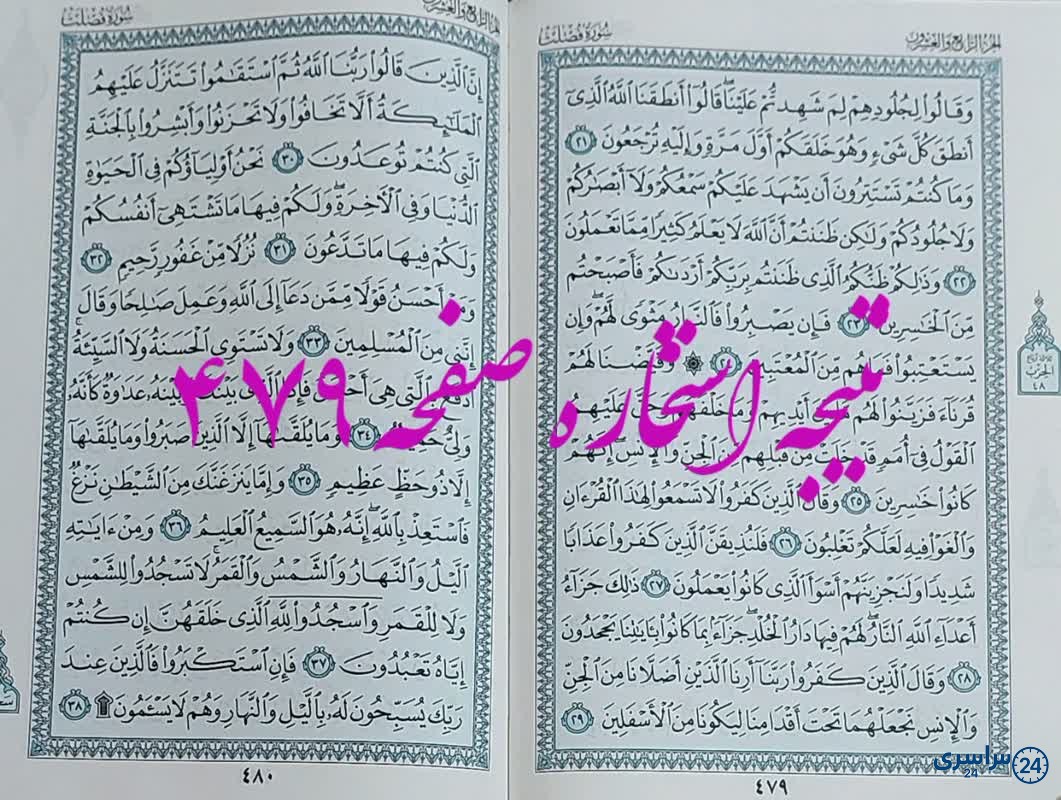 الجزء الرابع والعشرون
سورة فصلت
وَقَالُوا۟ لِجُلُودِهِمْ لِمَ شَهِدتُّمْ عَلَيْنَا ۖ قَالُوٓا۟ أَنطَقَنَا ٱللَّهُ ٱلَّذِىٓ
أَنطَقَ كُلَّ شَىْءٍ وَهُوَ خَلَقَكُمْ أَوَّلَ مَرَّةٍ وَإِلَيْهِ تُرْجَعُونَ ٢١
وَمَا كُنتُمْ تَسْتَتِرُونَ أَن يَشْهَدَ عَلَيْكُمْ سَمْعُكُمْ وَلَآ أَبْصَٰرُكُمْ
وَلَا جُلُودُكُمْ وَلَٰكِن ظَنَنتُمْ أَنَّ ٱللَّهَ لَا يَعْلَمُ كَثِيرًا مِّمَّا تَعْمَلُونَ
٢٢ وَذَٰلِكُمْ ظَنُّكُمُ ٱلَّذِى ظَنَنتُم بِرَبِّكُمْ أَرْدَىٰكُمْ فَأَصْبَحْتُم
مِّنَ ٱلْخَٰسِرِينَ ٢٣ فَإِن يَصْبِرُوا۟ فَٱلنَّارُ مَثْوًى لَّهُمْ ۖ وَإِن
يَسْتَعْتِبُوا۟ فَمَا هُم مِّنَ ٱلْمُعْتَبِينَ ٢٤ ۞ وَقَيَّضْنَا لَهُمْ
قُرَنَآءَ فَزَيَّنُوا۟ لَهُم مَّا بَيْنَ أَيْدِيهِمْ وَمَا خَلْفَهُمْ وَحَقَّ عَلَيْهِمُ
ٱلْقَوْلُ فِىٓ أُمَمٍ قَدْ خَلَتْ مِن قَبْلِهِم مِّنَ ٱلْجِنِّ وَٱلْإِنسِ ۖ إِنَّهُمْ
كَانُوا۟ خَٰسِرِينَ ٢٥ وَقَالَ ٱلَّذِينَ كَفَرُوا۟ لَا تَسْمَعُوا۟ لِهَٰذَا ٱلْقُرْءَانِ
وَٱلْغَوْا۟ فِيهِ لَعَلَّكُمْ تَغْلِبُونَ ٢٦ فَلَنُذِيقَنَّ ٱلَّذِينَ كَفَرُوا۟ عَذَابًا
شَدِيدًا وَلَنَجْزِيَنَّهُمْ أَسْوَأَ ٱلَّذِى كَانُوا۟ يَعْمَلُونَ ٢٧ ذَٰلِكَ جَزَآءُ
أَعْدَآءِ ٱللَّهِ ٱلنَّارُ ۖ لَهُمْ فِيهَا دَارُ ٱلْخُلْدِ ۖ جَزَآءًۢ بِمَا كَانُوا۟ بِـَٔايَٰتِنَا يَجْحَدُونَ
٢٨ وَقَالَ ٱلَّذِينَ كَفَرُوا۟ رَبَّنَآ أَرِنَا ٱلَّذَيْنِ أَضَلَّانَا مِنَ ٱلْجِنِّ
وَٱلْإِنسِ نَجْعَلْهُمَا تَحْتَ أَقْدَامِنَا لِيَكُونَا مِنَ ٱلْأَسْفَلِينَ ٢٩
٤٧٩
الحزب
٤٨
الجزء الرابع والعشرون
سورة فصلت
إِنَّ ٱلَّذِينَ قَالُوا۟ رَبُّنَا ٱللَّهُ ثُمَّ ٱسْتَقَٰمُوا۟ تَتَنَزَّلُ عَلَيْهِمُ
ٱلْمَلَٰٓئِكَةُ أَلَّا تَخَافُوا۟ وَلَا تَحْزَنُوا۟ وَأَبْشِرُوا۟ بِٱلْجَنَّةِ
ٱلَّتِى كُنتُمْ تُوعَدُونَ ٣٠ نَحْنُ أَوْلِيَآؤُكُمْ فِى ٱلْحَيَوٰةِ
ٱلدُّنْيَا وَفِى ٱلْءَاخِرَةِ ۖ وَلَكُمْ فِيهَا مَا تَشْتَهِىٓ أَنفُسُكُمْ
وَلَكُمْ فِيهَا مَا تَدَّعُونَ ٣١ نُزُلًا مِّنْ غَفُورٍ رَّحِيمٍ ٣٢
وَمَنْ أَحْسَنُ قَوْلًا مِّمَّن دَعَآ إِلَى ٱللَّهِ وَعَمِلَ صَٰلِحًا وَقَالَ
إِنَّنِى مِنَ ٱلْمُسْلِمِينَ ٣٣ وَلَا تَسْتَوِى ٱلْحَسَنَةُ وَلَا ٱلسَّيِّئَةُ ۚ
ٱدْفَعْ بِٱلَّتِى هِىَ أَحْسَنُ فَإِذَا ٱلَّذِى بَيْنَكَ وَبَيْنَهُۥ عَدَٰوَةٌ كَأَنَّهُۥ
وَلِىٌّ حَمِيمٌ ٣٤ وَمَا يُلَقَّىٰهَآ إِلَّا ٱلَّذِينَ صَبَرُوا۟ وَمَا يُلَقَّىٰهَآ
إِلَّا ذُو حَظٍّ عَظِيمٍ ٣٥ وَإِمَّا يَنزَغَنَّكَ مِنَ ٱلشَّيْطَٰنِ نَزْغٌ
فَٱسْتَعِذْ بِٱللَّهِ ۖ إِنَّهُۥ هُوَ ٱلسَّمِيعُ ٱلْعَلِيمُ ٣٦ وَمِنْ ءَايَٰتِهِ
ٱلَّيْلُ وَٱلنَّهَارُ وَٱلشَّمْسُ وَٱلْقَمَرُ ۚ لَا تَسْجُدُوا۟ لِلشَّمْسِ
وَلَا لِلْقَمَرِ وَٱسْجُدُوا۟ لِلَّهِ ٱلَّذِى خَلَقَهُنَّ إِن كُنتُمْ
إِيَّاهُ تَعْبُدُونَ ٣٧ فَإِنِ ٱسْتَكْبَرُوا۟ فَٱلَّذِينَ عِندَ
رَبِّكَ يُسَبِّحُونَ لَهُۥ بِٱلَّيْلِ وَٱلنَّهَارِ وَهُمْ لَا يَسْـَٔمُونَ ۩ ٣٨
٤٨٠
نتیجه استخاره صفحه ۴۷۹
سراسری 24
24